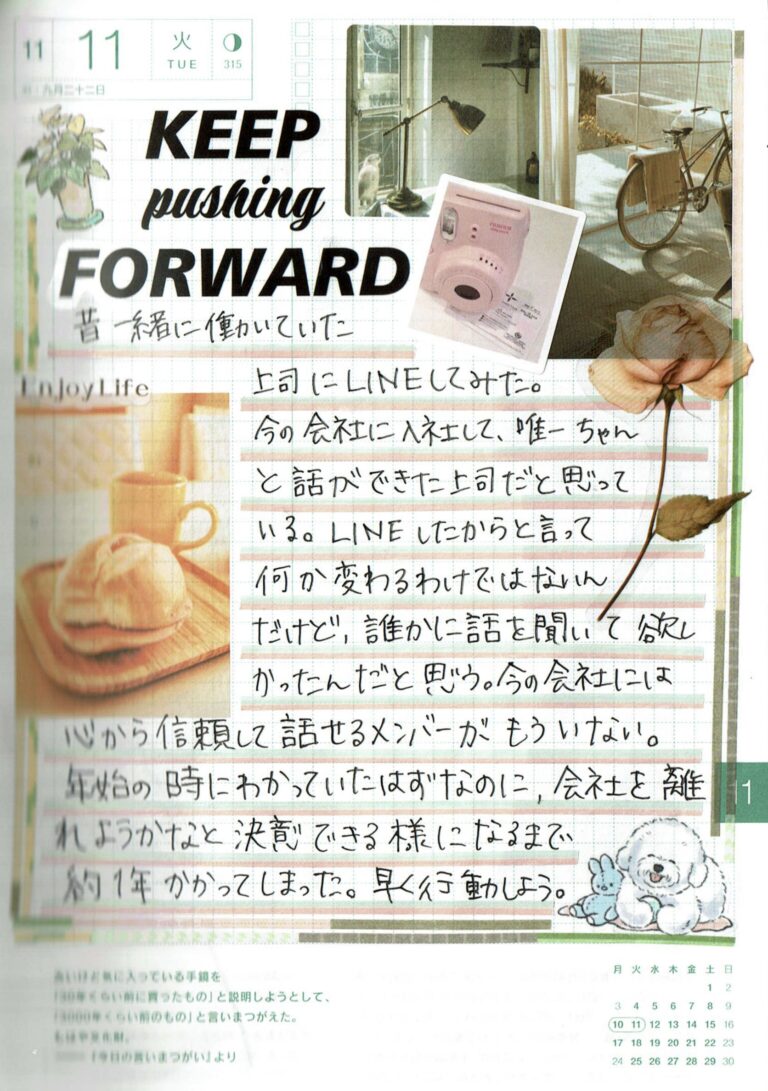 11
11
火
TUE
315
旧・九月二十二日
KEEP
pushing
FORWARD
FUJIFILM
昔 一緒に働いていた
EnjoyLife
上司にLINEしてみた。
今の会社に入社して、唯一ちゃん
と話ができた上司だと思って
いる。LINEしたからと言って
何か変わるわけではないん
だけど、誰かに話を聞いて欲し
かったんだと思う。今の会社には
心から信頼して話せるメンバーがもういない。
年始の時にわかっていたはずなのに、会社を離
れようかなと決意できる様になるまで
約1年かかってしまった。早く行動しよう。
1
古いけど気に入っている手鏡を
「30年くらい前に買ったもの」と説明しようとして、
「3000年くらい前のもの」と言いまつがえた。
もはや文化財。
『今日の言いまつがい』より
月 火 水 木 金 土 日
1 2
3 4 5 6 7 8 9
10 11 12 13 14 15 16
17 18 19 20 21 22 23
24 25 26 27 28 29 30